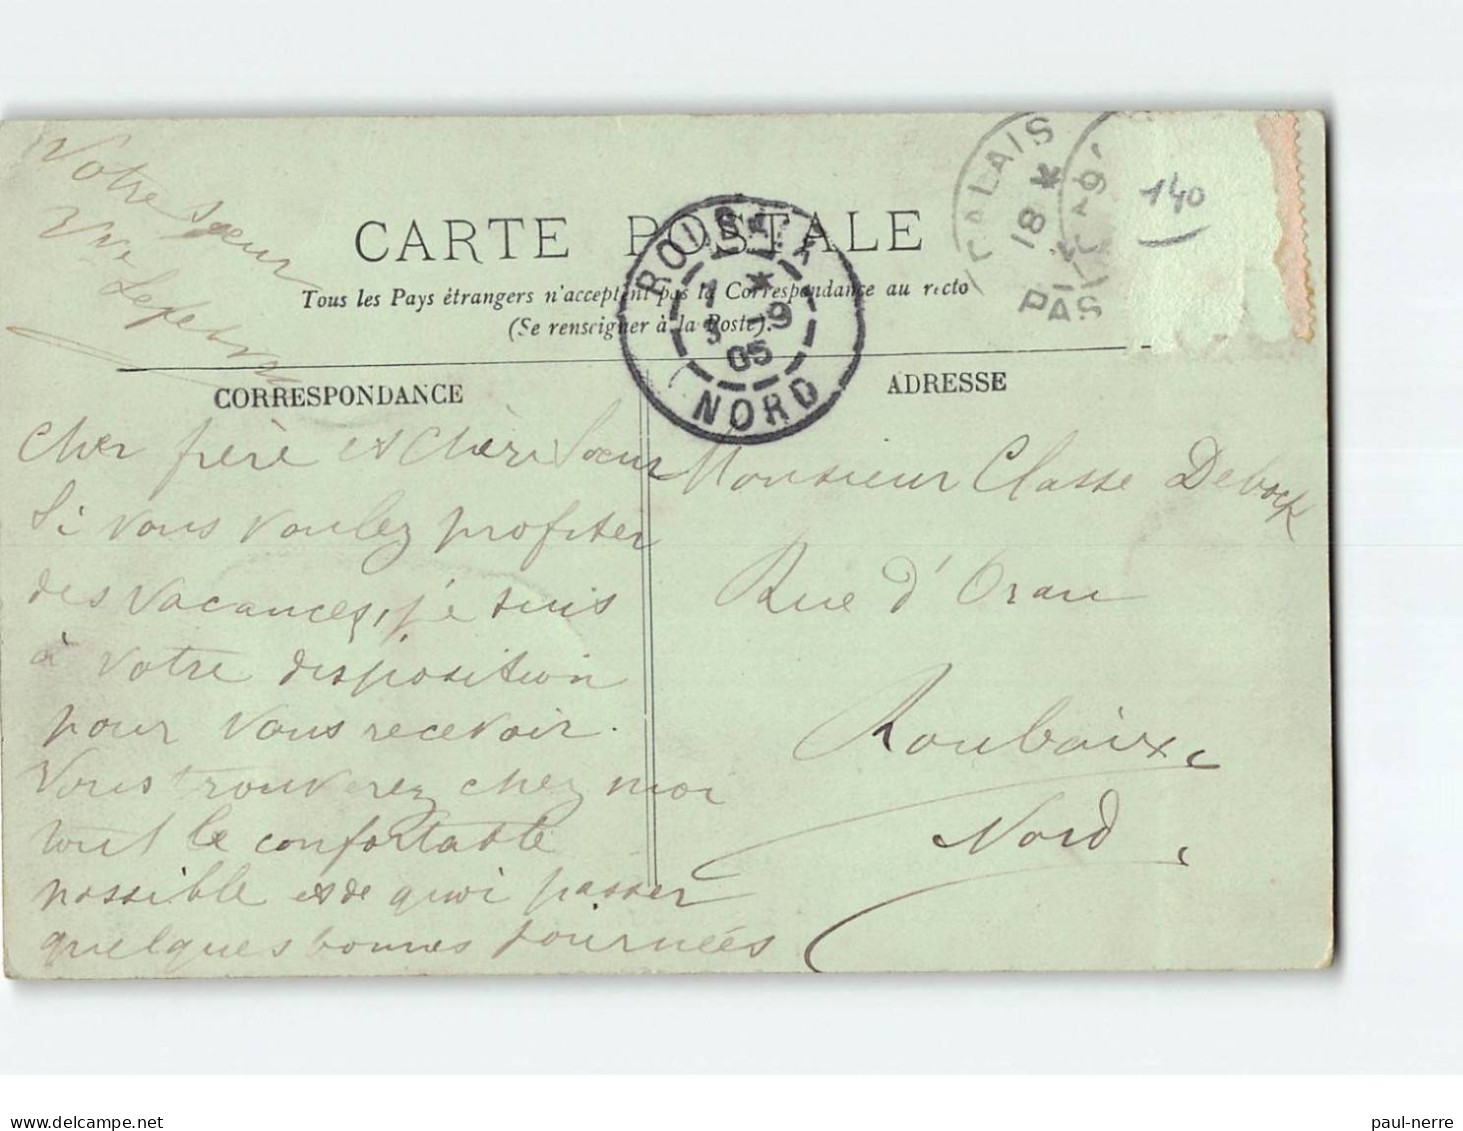 Votre sœur
Vve Lefebvre
CARTE POSTALE
Tous les Pays étrangers n'acceptent pas la Correspondance au recto
(Se renseigner à la Poste).
ROUBAIX
1 *
3 -9
05
NORD
CALAIS
18 *
-9
PAS
140
CORRESPONDANCE
Cher frère et Chère Sœur
Si vous voulez profiter
des vacances, je suis
à votre disposition
pour vous recevoir.
Vous trouverez chez moi
tout le confortable
possible et de quoi passer
quelques bonnes journées
ADRESSE
Monsieur Classe Debock
Rue d'Oran
Roubaix
Nord
paul-nerre